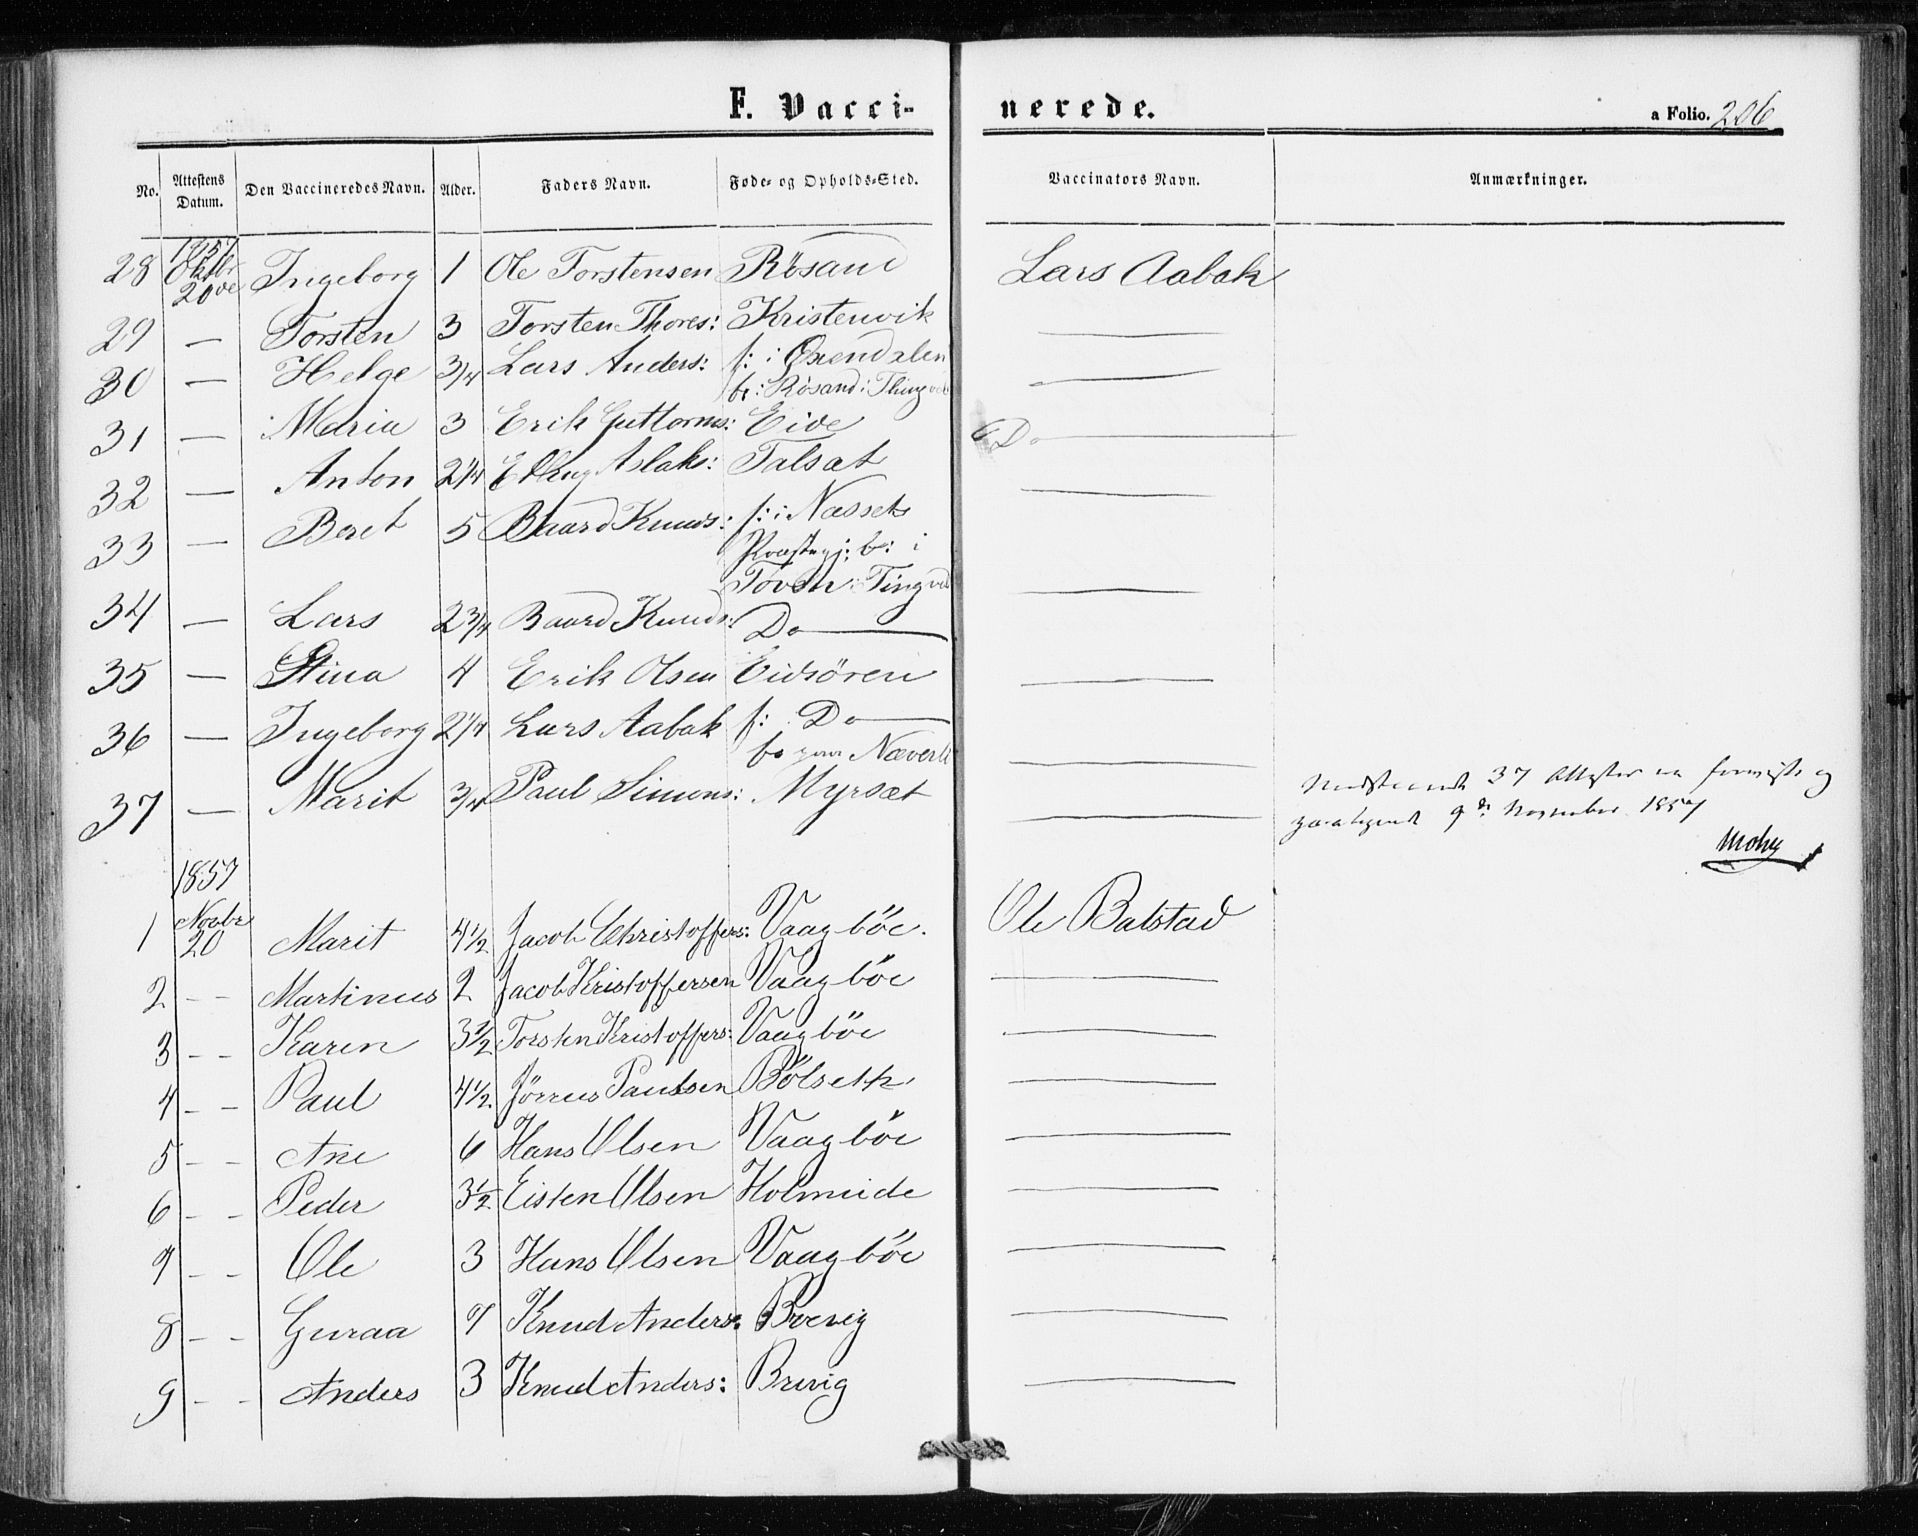 F. Vacci- nerede.
a Folio. 206
No. Attestens Datum. Den Vaccineredes Navn. Alder. Faders Navn. Føde- og Opholds-Sted. Vaccinators Navn. Anmærkninger.
1857
28 Oktbr 20de Ingeborg 1 Ole Torstensen Røsand Lars Aabak
29 — Torsten 3 Torsten Thores: Kristenvik —
30 — Helge 3/4 Lars Anders: f: i Øxendalen —
b: Røsand i Thingvold
31 — Maria 3 Erik Guttorms: Eide Do —
32 — Anton 2 1/4 Elling Aslaks: Talsæt —
33 — Beret 5 Baard Knuds: f: i Næssets
Præstegj: b: i
Tøvsn: Tingvold —
34 — Lars 2 3/4 Baard Knuds: Do —
35 — Stina 4 Erik Olsen Eidsören —
36 — Ingeborg 2 1/4 Lars Aabak f: Do —
bo paa Næverli —
37 — Marit 3/4 Paul Simons: Myrsæt —
37 Attester
9de November 1857
1857
1 Novbr 20 Marit 4 1/2 Jacob Christoffers: Vaagböe. Ole Balstad
2 — — Martinus 2 Jacob Kristoffersen Vaagböe —
3 — — Karen 3 1/2 Torsten Kristoffers: Vaagböe —
4 — — Paul 4 1/2 Jörren Paulsen Bölseth —
5 — — Ane 6 Hans Olsen Vaagböe —
6 — — Peder 3 1/2 Eisten Olsen Holmeide —
7 — — Ole 3 Hans Olsen Vaagböe —
8 — — Guraa 7 Knud Anders: Brevig —
9 — — Anders 3 Knud Anders: Brevig —